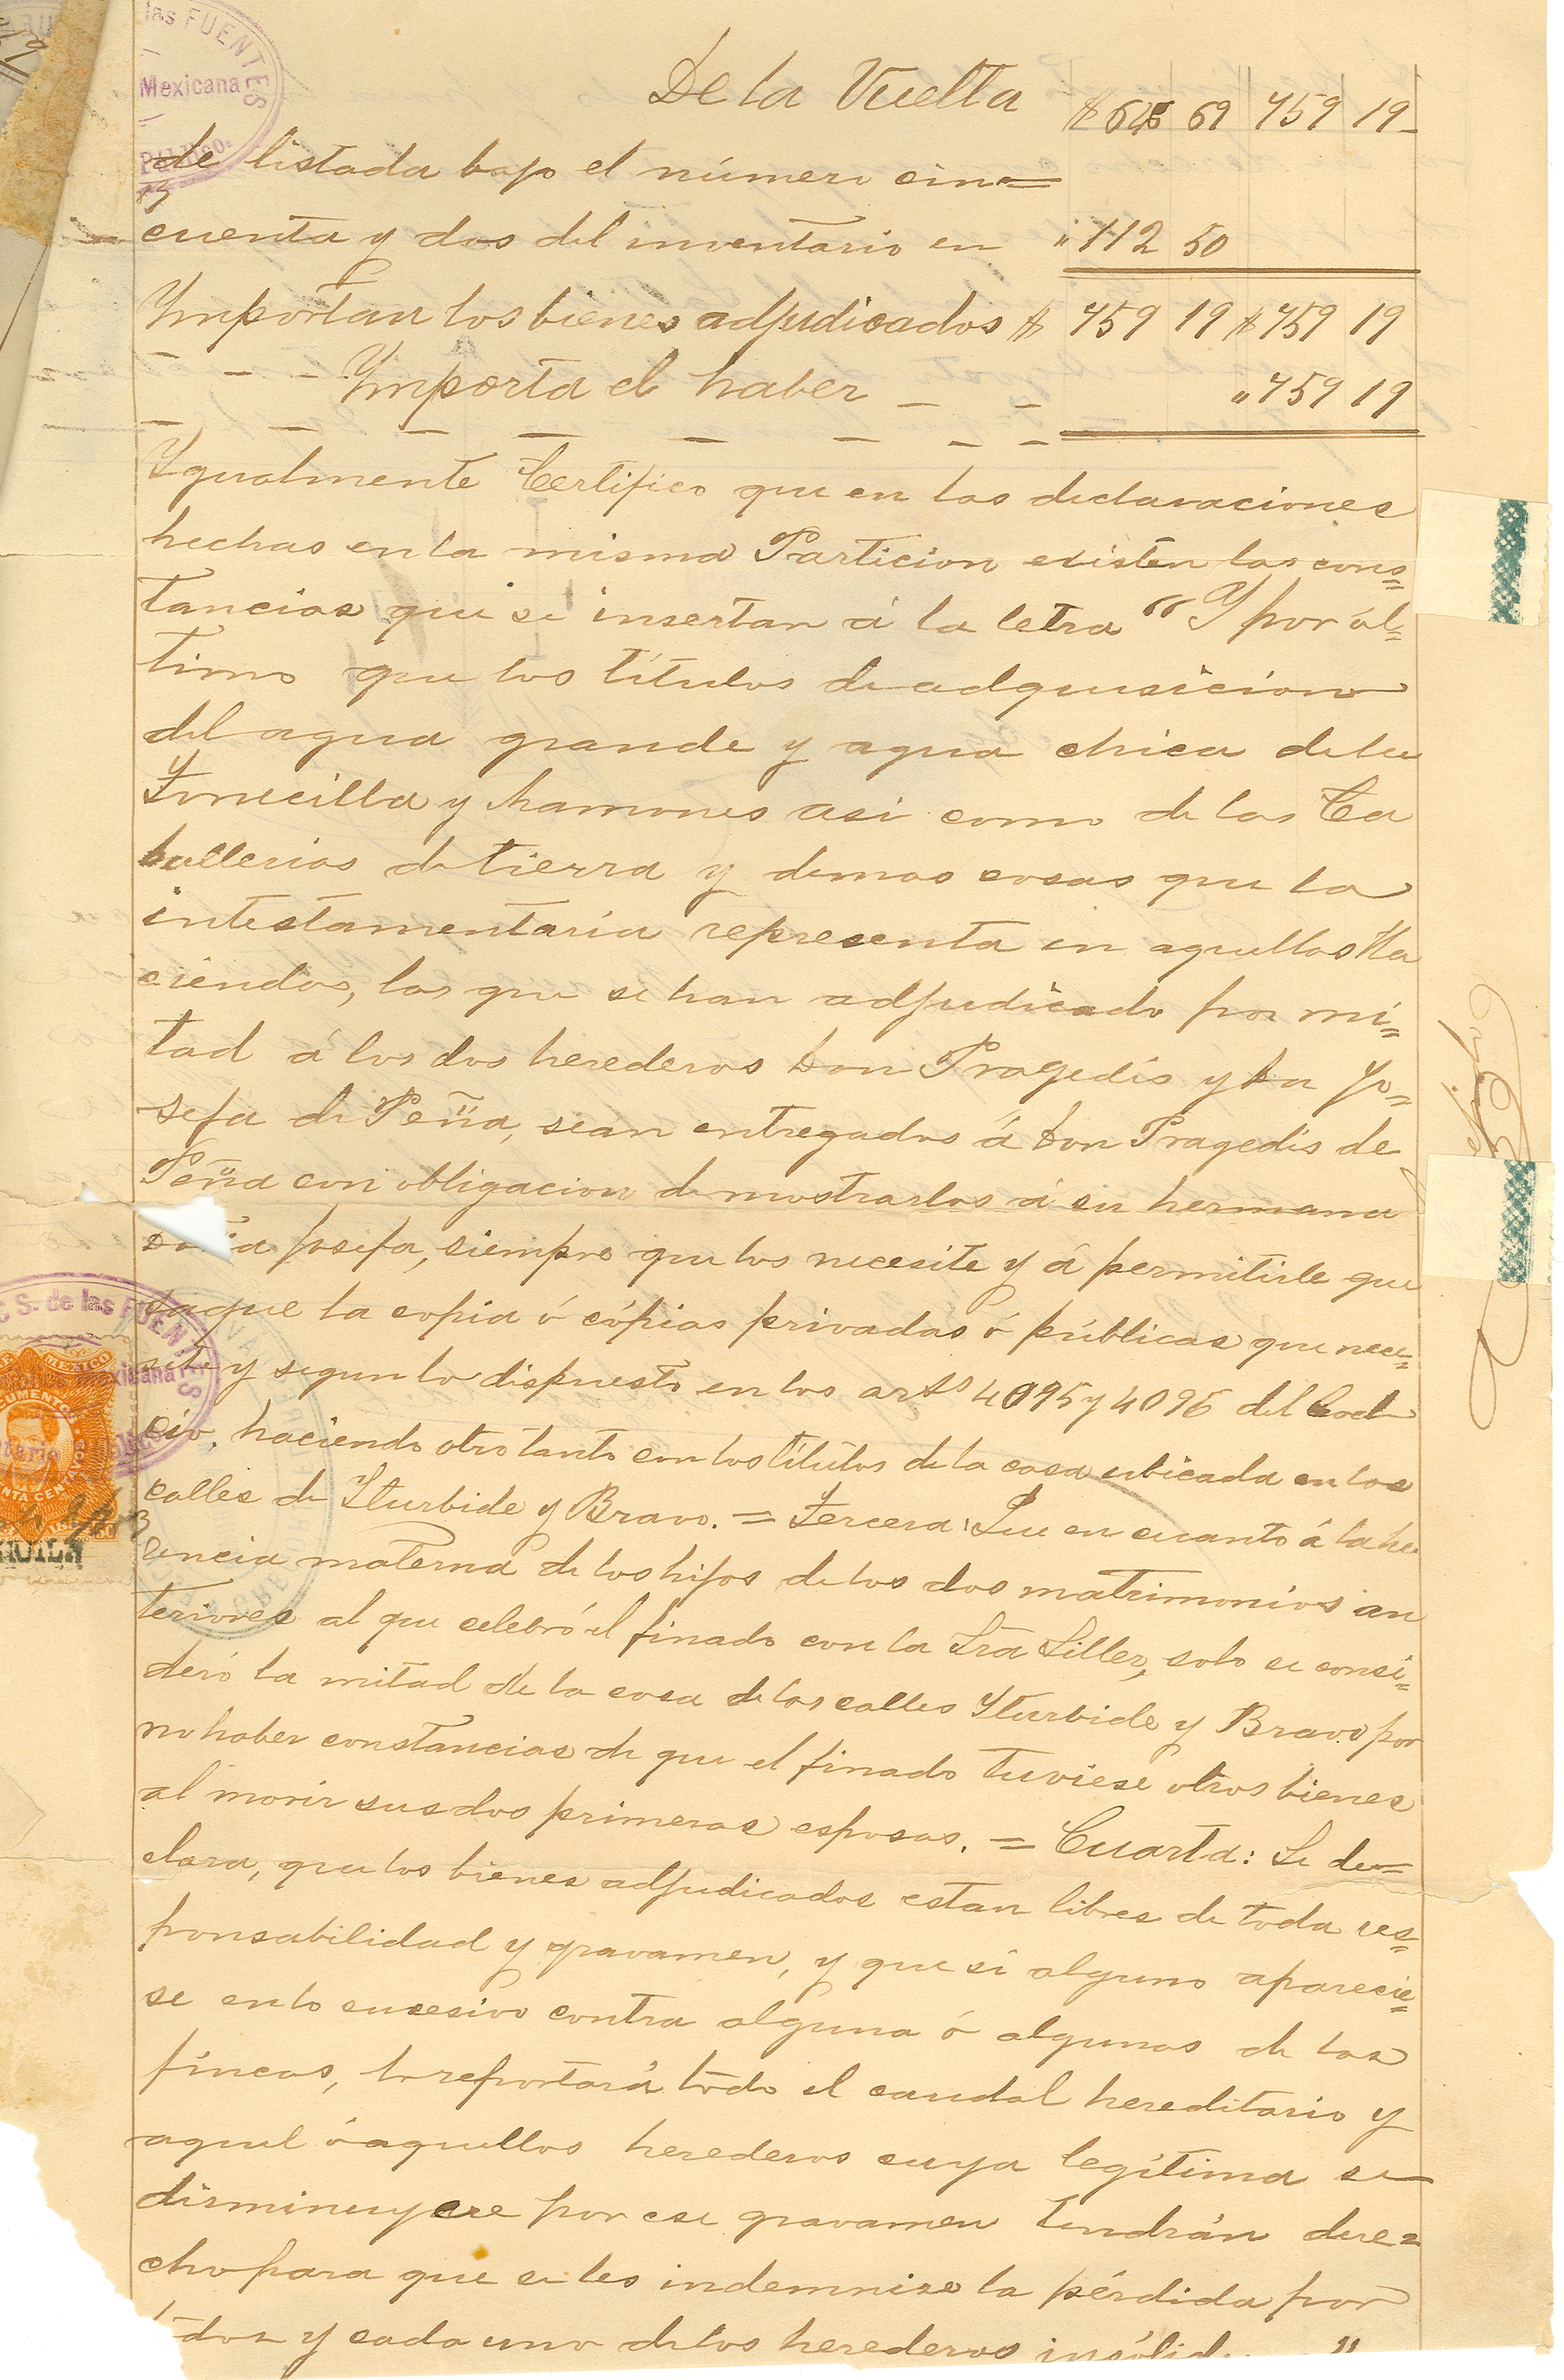 De la Vuelta $ 646 69 759 19
de listada bajo el número cin=
cuenta y dos del inventario en " 112 50
Ymportan los bienes adjudicados $ 759 19 $ 759 19
Ymporta el haber " 759 19
Ygualmente Certifico que en las declaraciones
hechas en la misma Particion existen las cons=
tancias que se insertan á la letra " Y por úl=
timo que los títulos de adquisicion
del agua grande y agua chica de la
y hamones asi como de las Ca
ballerias de tierra y demas cosas que la
intestamentaría representa en aquellas Ha
ciendas, las que se han adjudicado por mi=
tad á los dos herederos Don Pragedis y Da Jo=
sefa de Peña, sean entregados á Don Pragedis de
Peña con obligacion de mostrarlos á su hermana
Doña Josefa, siempre que los necesite y á permitirle que
saque la copia ó cópias privadas ó públicas que nece=
site y segun lo dispuesto en los arts 4095 y 4096 del Cod
Civ. haciendo otro tanto con los títulos de la casa ubicada en las
calles de Yturbide y Bravo. = Tercera: Que en cuanto á la he
rencia materna de los hijos de los dos matrimonios an
teriores al que celebró el finado con la Sra Siller, solo se consi=
deró la mitad de la casa de las calles Yturbide y Bravo por
no haber constancias de que el finado tuviese otros bienes
al morir sus dos primeras esposas. = Cuarta: Se de=
clara, que los bienes adjudicados estan libres de toda res=
ponsabilidad y gravamen, y que si alguno aparecie=
se en lo sucesivo contra alguna ó algunas de las
fincas, lo reportará todo el caudal hereditario y
aquel ó aquellos herederos cuya legítima se
disminuyere por ese gravamen tendrán dere=
cho para que se les indemnise la pérdida por
todos y cada uno de los herederos "
las FUENTES
Mexicana
S. de las FUENTES
MEXICO